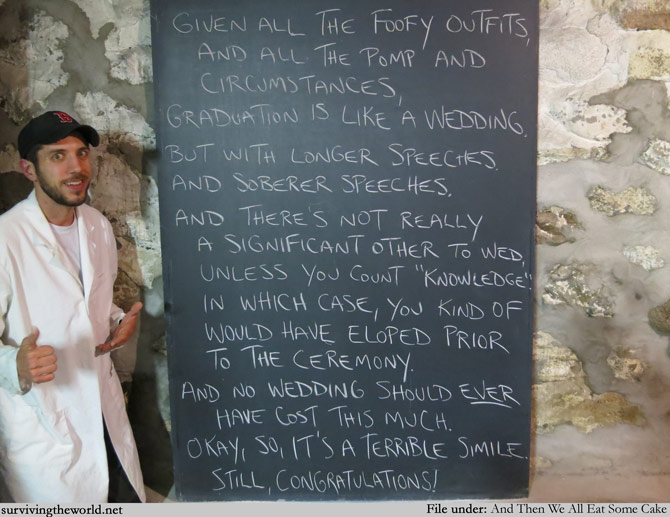 GIVEN ALL THE FOOFY OUTFITS,
AND ALL THE POMP AND
CIRCUMSTANCES,
GRADUATION IS LIKE A WEDDING.
BUT WITH LONGER SPEECHES.
AND SOBERER SPEECHES.
AND THERE'S NOT REALLY
A SIGNIFICANT OTHER TO WED,
UNLESS YOU COUNT "KNOWLEDGE".
IN WHICH CASE, YOU KIND OF
WOULD HAVE ELOPED PRIOR
TO THE CEREMONY.
AND NO WEDDING SHOULD EVER
HAVE COST THIS MUCH.
OKAY, SO, IT'S A TERRIBLE SIMILE.
STILL, CONGRATULATIONS!
B
survivingtheworld.net
File under: And Then We All Eat Some Cake